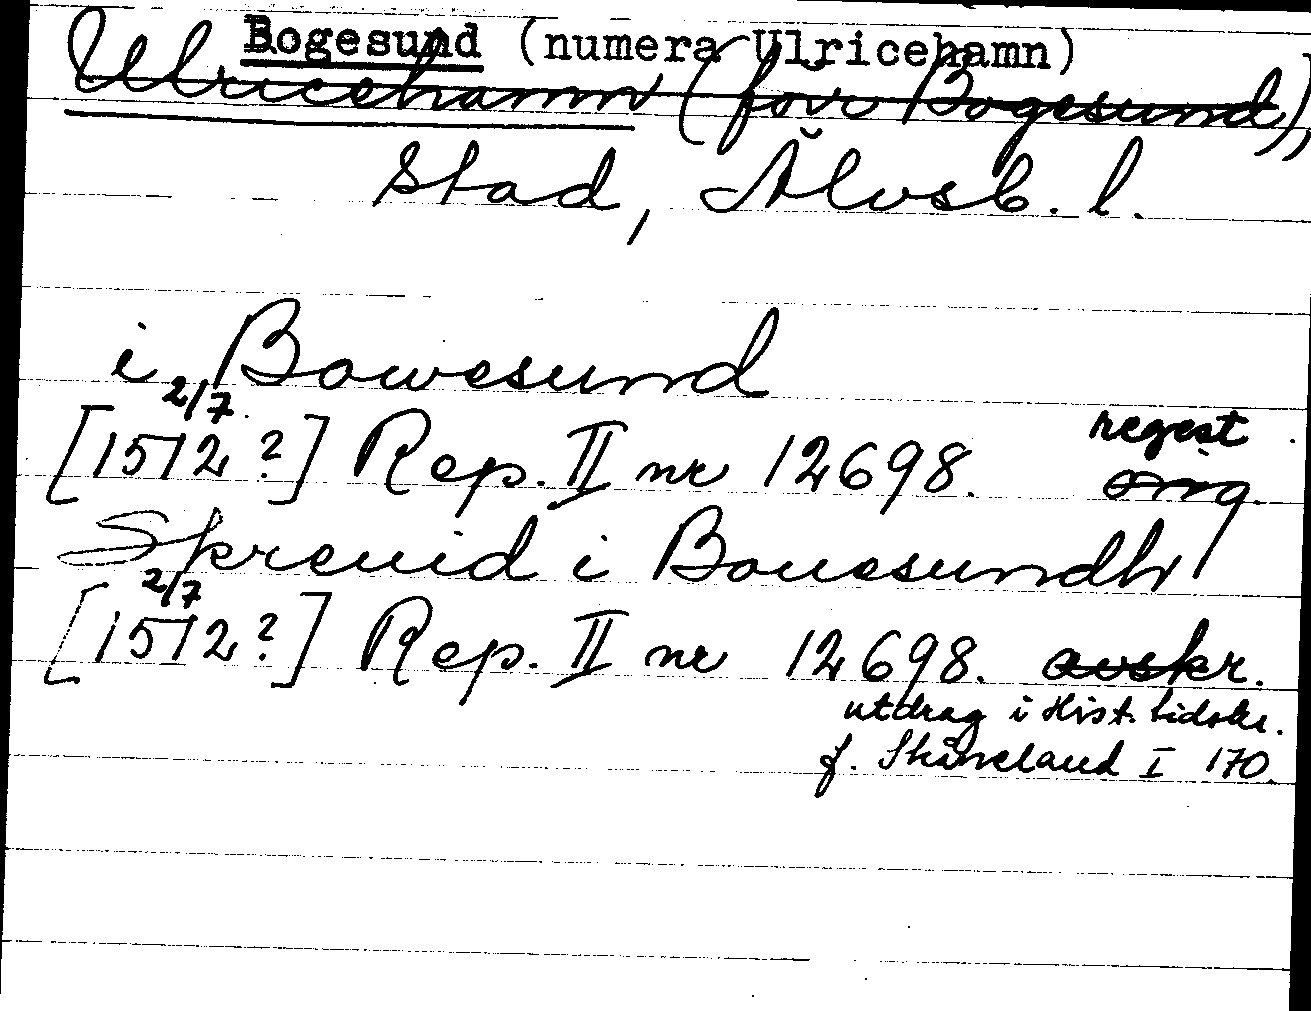 Bogesund (numera Ulricehamn)
Ulricehamn (förr Bogesund),
stad, Älvsb. l.
i Bowesund
2/7
[1512?] Rep. II nr 12698. regest
orig.
Skreuid i Bouesundh
2/7
[1512?] Rep. II nr 12698. avskr.
utdrag i Hist. tidskr.
f. Skåneland I 170.